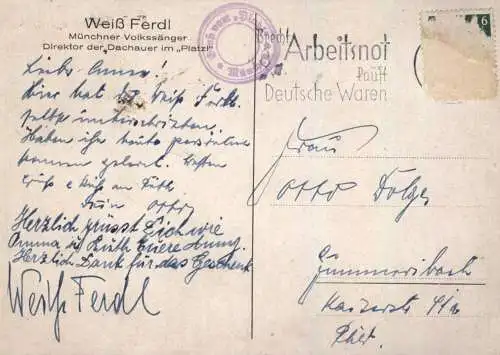 Weiß Ferdl
Münchner Volkssänger
Direktor der Dachauer im „Platzl“
Liebe
Hier hat der Weiß Ferdl
selbst unterschrieben.
Haben ihn heute persönlich
kennen gelernt. Besten
Gruß
Dein Otto
Herzlich grüsst Eich wie
Omma u Ruth Euere Anny.
Herzlich Dank für das Geschenk
Weiß Ferdl
Brecht
Arbeitsnot
kauft
Deutsche Waren
6
Frau
Otto Dolges
Gummersbach
Kaiserstr
Rhld.